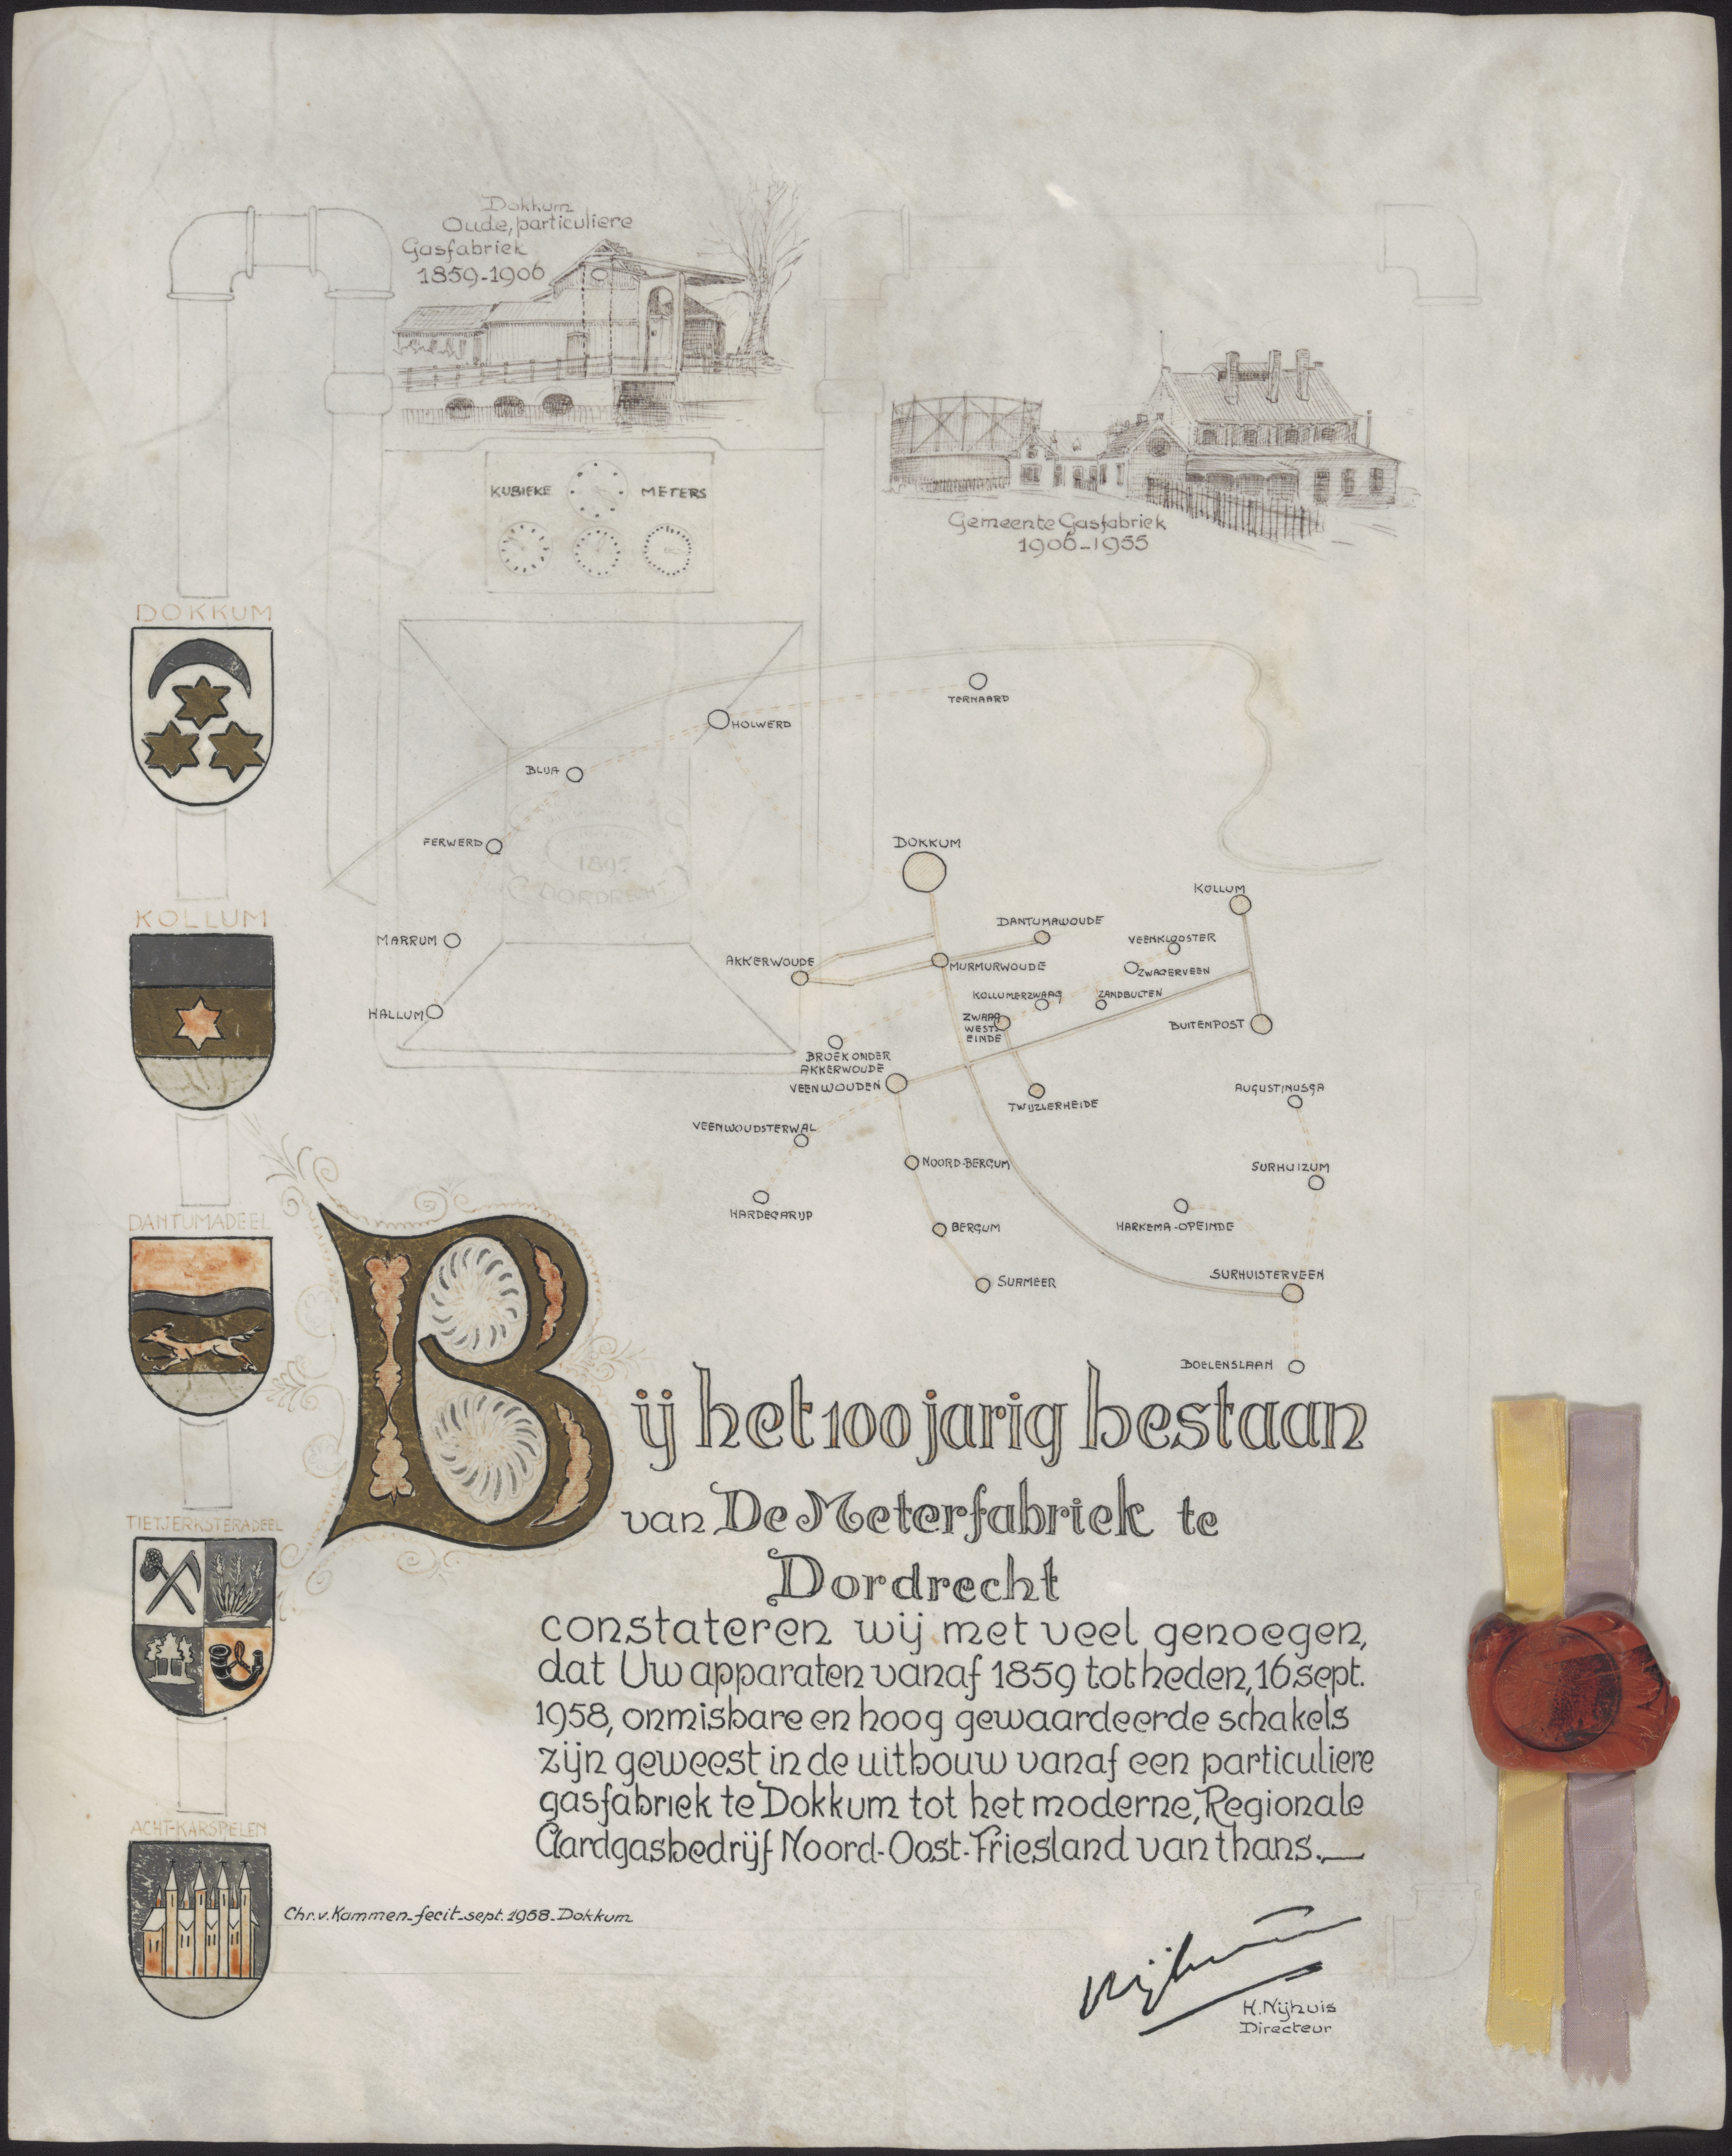 Dokkum
Oude, particuliere
Gasfabriek
1859-1906
KUBIEKE METERS
Gemeente Gasfabriek
1906-1955
DOKKUM
KOLLUM
DANTUMADEEL
TIETJERKSTERADEEL
ACHT-KARSPELEN
TERNAARD
HOLWERD
BLIJA
FERWERD
1895
DORDRECHT
MARRUM
HALLUM
DOKKUM
KOLLUM
DANTUMAWOUDE
VEENKLOOSTER
AKKERWOUDE
MURMURWOUDE
ZWAGERVEEN
KOLLUMERZWAAG
ZANDBULTEN
ZWAAG
WEST.
EINDE
BUITENPOST
BROEK ONDER
AKKERWOUDE
VEENWOUDEN
TWIJZLERHEIDE
AUGUSTINUSGA
VEENWOUDSTERWAL
NOORD-BERGUM
SURHUIZUM
HARDEGARIJP
BERGUM
HARKEMA-OPEINDE
SUAMEER
SURHUISTERVEEN
BOELENSLAAN
Bij het 100 jarig bestaan
van De Meterfabriek te
Dordrecht
constateren wij met veel genoegen,
dat Uw apparaten vanaf 1859 tot heden, 16 sept.
1958, onmisbare en hoog gewaardeerde schakels
zijn geweest in de uitbouw vanaf een particuliere
gasfabriek te Dokkum tot het moderne, Regionale
Aardgasbedrijf Noord-Oost-Friesland van thans.
Chr. v. Kammen-fecit-sept. 1958-Dokkum
Nijhuis
H. Nijhuis
Directeur